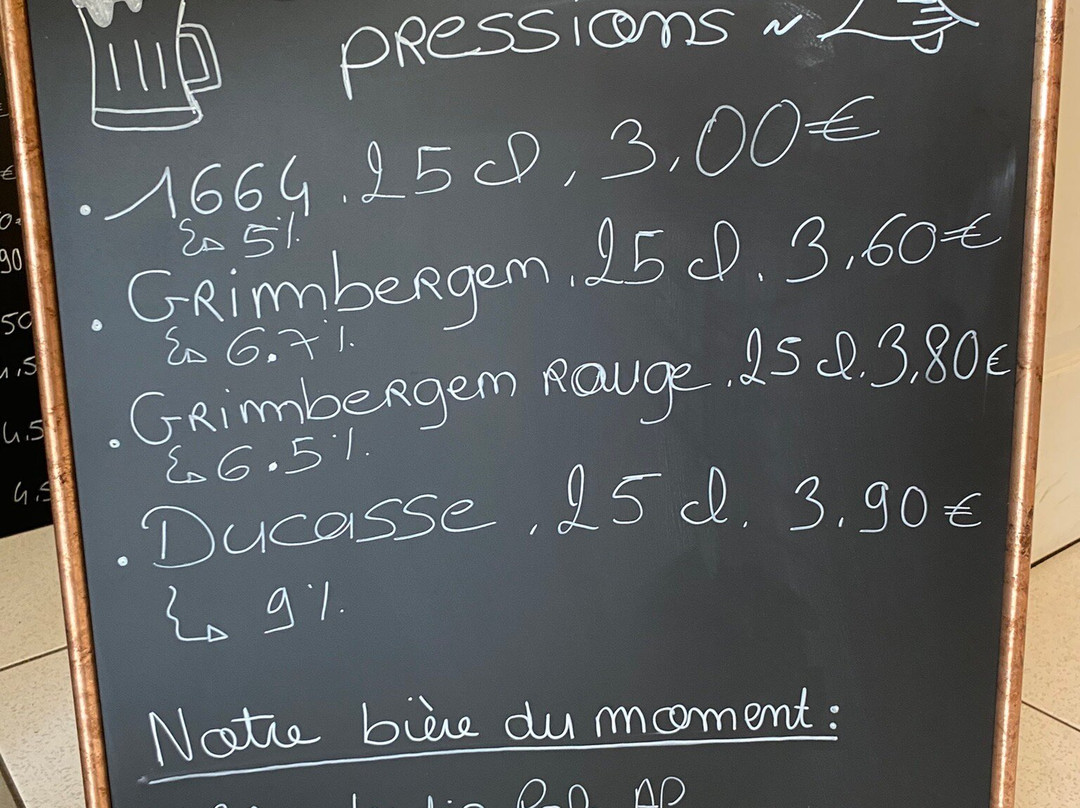 PRESSIONS ~
• 1664 . 25 cl , 3,00€
5%
• Grimbergem . 25 cl . 3,60€
6.7%
• Grimbergem Rouge . 25 cl . 3,80€
6.5%
• Ducasse . 25 cl . 3.90€
9%
Notre bière du moment :